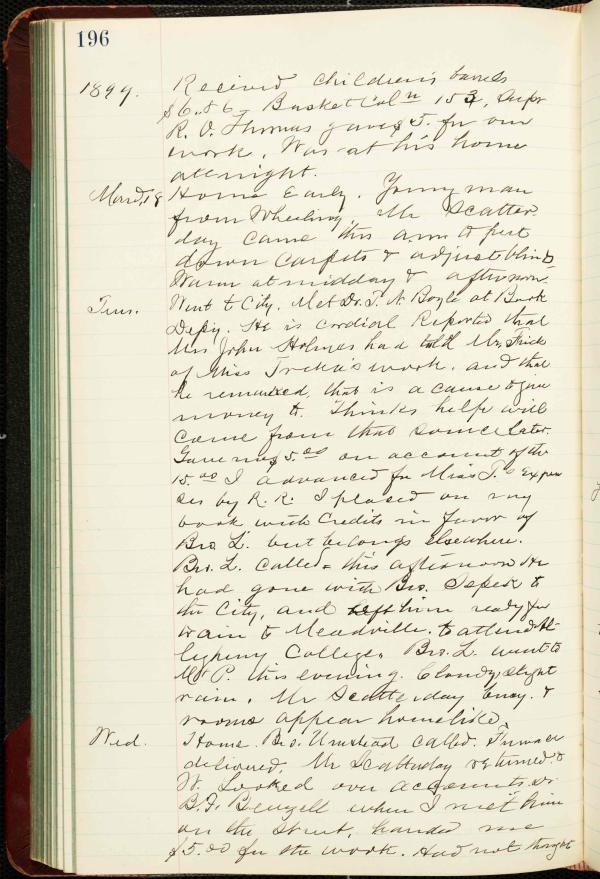 196
1899. Received children's barrels
$6.86 - Basket Coln 153, Supr
R. O. Thomas gave $5. for our
work. Was at his home
all night.
Mond, 18 Home Early. Young man
from Wheeling, Mr Scatter
day came this a.m to put
down carpets & adjust blinds
Warm at midday & afternoon.
Tues. Went to City. Met Dr. T. N. Boyle at Book
Depiy. He is cordial Reported that
Mrs John Holmes had told Mr. Frick
of Miss Trcka's work. and that
he remarked, that is a cause to give
money to. Thinks help will
come from that source later.
Gave me $5.00 on account of the
15.00 I advanced for Miss T.s Expen
ses by R. R. I placed on my
book with Credits in favor of
Bro. L. but belongs elsewhere.
Bro. L. called - this afternoon He
had gone with Bro. to
the City, and left him ready for
train to Meadville. to attend Al-
legheny College. Bro. L. went to
Mt P. this evening. Cloudy, slight
rain. Mr Scatterday busy. &
rooms appear homelike.
Wed. Home. Bro. Umstead called. Furnace
delivered. Mr Scatterday returned to
W. Looked over accounts. Dr.
B. F. Beazell when I met him
on the street, handed me
$5.00 for the work. Had not thought